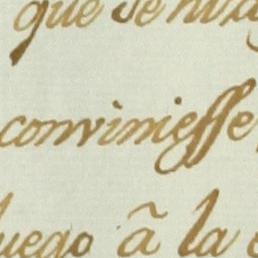 que se hiz
conviniesse
luego â la